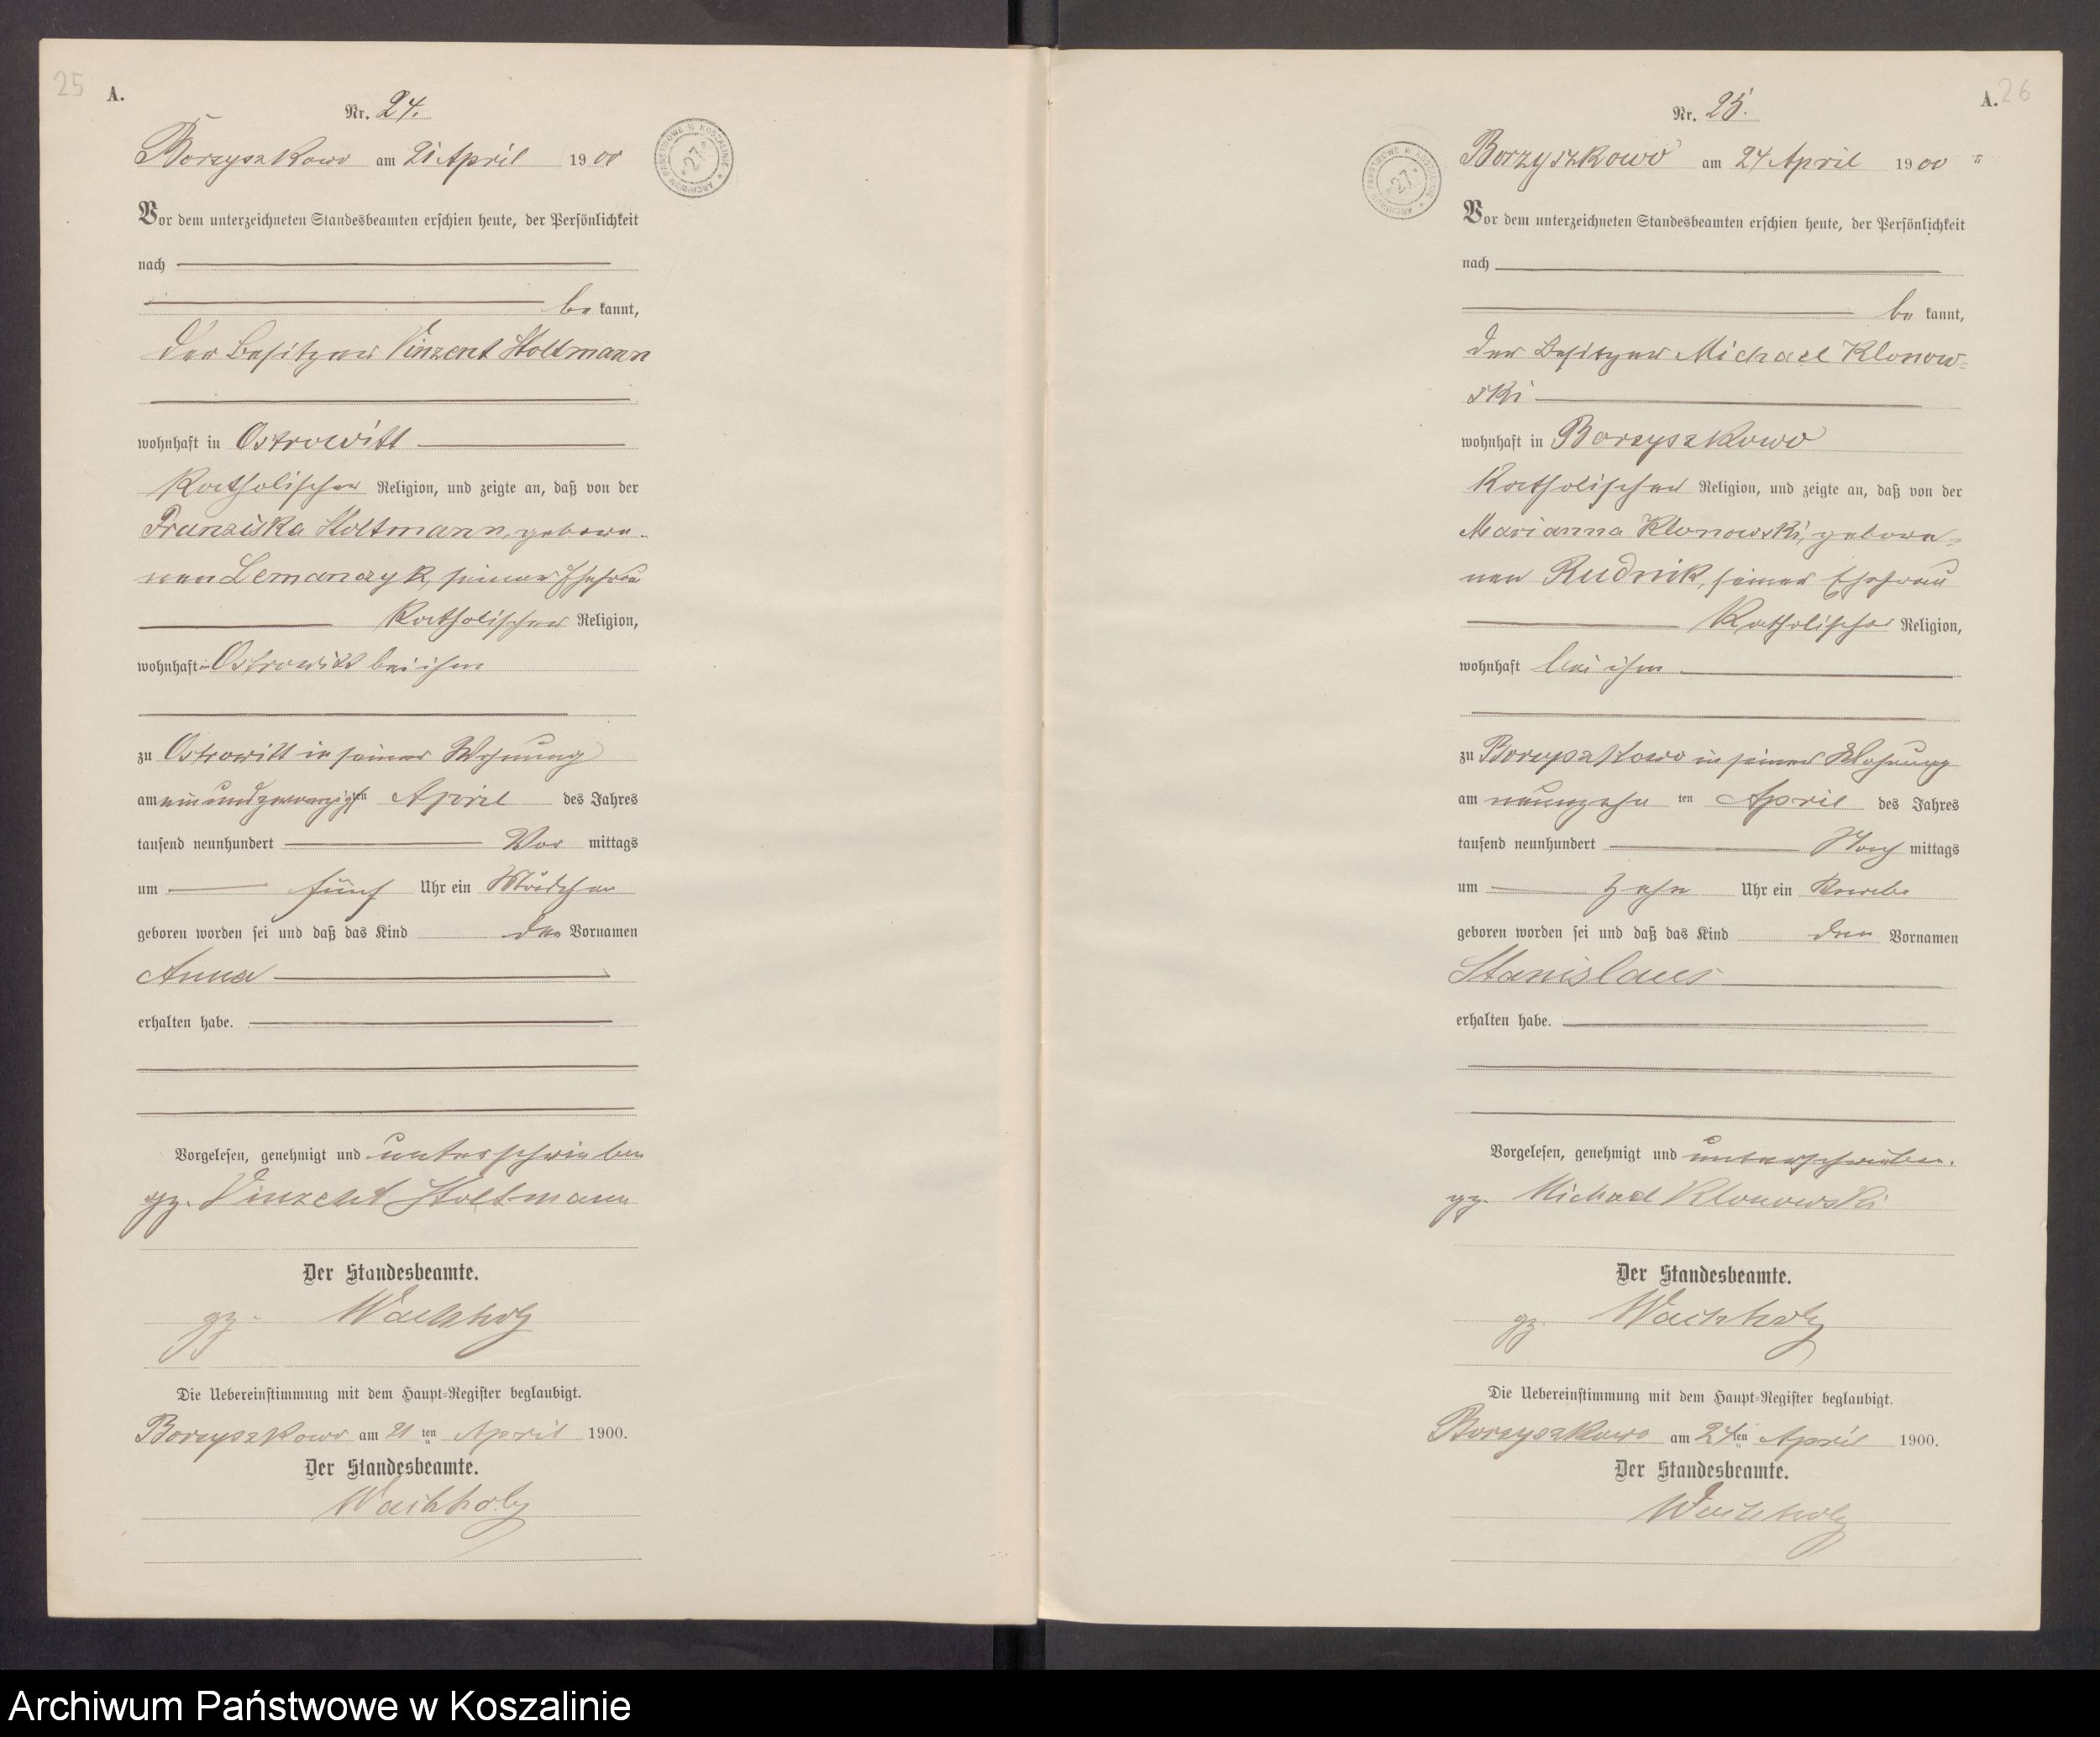 25
A.
Nr. 24.
Borzyszkowo am 21 April 1900
ARCHIWUM PAŃSTWOWE W KOSZALINIE * 27 *
Vor dem unterzeichneten Standesbeamten erschien heute, der Persönlichkeit
nach
be kannt,
der Besitzer Vinzent Stoltmann
wohnhaft in Ostrowitt
katholischer Religion, und zeigte an, daß von der
Franziska Stoltmann, gebore-
nen Lemanczyk, seiner Ehefrau
katholischer Religion,
wohnhaft in Ostrowitt bei ihm
zu Ostrowitt in seiner Wohnung
am ein und zwanzigsten April des Jahres
tausend neunhundert Vor mittags
um fünf Uhr ein Mädchen
geboren worden sei und daß das Kind den Vornamen
Anna
erhalten habe.
Vorgelesen, genehmigt und unterschrieben
gz. Vinzent Stoltmann
Der Standesbeamte.
gz. Wachholz
Die Uebereinstimmung mit dem Haupt-Register beglaubigt.
Borzyszkowo am 21 ten April 1900.
Der Standesbeamte.
Wachholz
A. 26
Nr. 25.
Borzyszkowo am 24 April 1900
ARCHIWUM PAŃSTWOWE W KOSZALINIE * 27 *
Vor dem unterzeichneten Standesbeamten erschien heute, der Persönlichkeit
nach
be kannt,
der Besitzer Michael Klonow=
ski
wohnhaft in Borzyszkowo
katholischer Religion, und zeigte an, daß von der
Marianna Klonowski, gebore=
nen Rudnik, seiner Ehefrau
katholischer Religion,
wohnhaft bei ihm
zu Borzyszkowo in seiner Wohnung
am neunzehn ten April des Jahres
tausend neunhundert Nach mittags
um zehn Uhr ein Knabe
geboren worden sei und daß das Kind den Vornamen
Stanislaus
erhalten habe.
Vorgelesen, genehmigt und unterschrieben.
gz. Michael Klonowski
Der Standesbeamte.
gz. Wachholz
Die Uebereinstimmung mit dem Haupt-Register beglaubigt.
Borzyszkowo am 24 ten April 1900.
Der Standesbeamte.
Wachholz
Archiwum Państwowe w Koszalinie